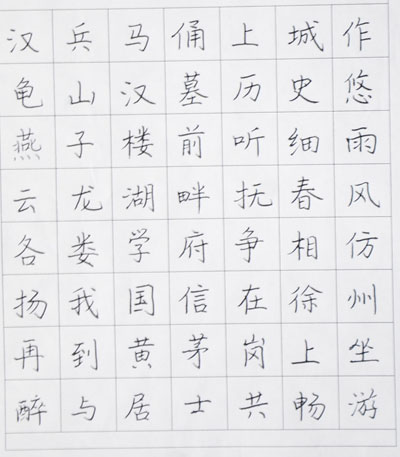 汉兵马俑上城作
龟山汉墓历史悠
燕子楼前听细雨
云龙湖畔抚春风
各娄学府争相仿
扬我国信在徐州
再到黄茅岗上坐
醉与居士共畅游